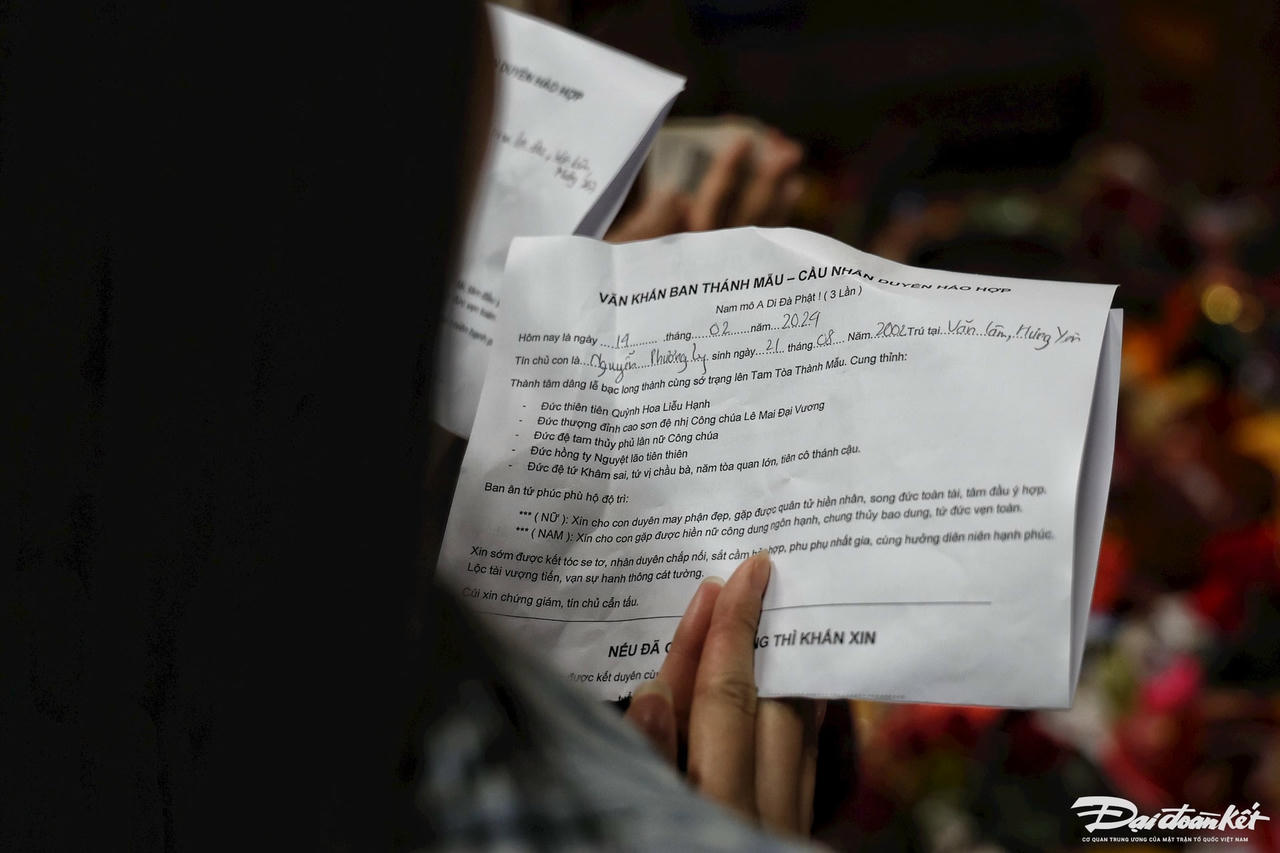 DUYÊN HẢO HỢP
VĂN KHẤN BAN THÁNH MẪU – CẦU NHÂN DUYÊN HẢO HỢP
Nam mô A Di Đà Phật ! ( 3 Lần )
Hôm nay là ngày ....19......... .tháng.....02......năm...2024
Tín chủ con là...Nguyễn....Phương Ly. sinh ngày..21.. tháng.08... Năm.2002 Trú tại..Văn Lâm, Hưng Yên
Thành tâm dâng lễ bạc long thành cùng sớ trạng lên Tam Tòa Thánh Mẫu. Cung thỉnh:
- Đức thiên tiên Quỳnh Hoa Liễu Hạnh
- Đức thượng đỉnh cao sơn đệ nhị Công chúa Lê Mai Đại Vương
- Đức đệ tam thủy phủ lân nữ Công chúa
- Đức hồng ty Nguyệt lão tiên thiên
- Đức đệ tứ Khâm sai, tứ vị chầu bà, năm tòa quan lớn, tiên cô thánh cậu.
Ban ân tứ phúc phù hộ độ trì:
*** ( NỮ ): Xin cho con duyên may phận đẹp, gặp được quân tử hiền nhân, song đức toàn tài, tâm đầu ý hợp.
*** ( NAM ): Xin cho con gặp được hiền nữ công dung ngôn hạnh, chung thủy bao dung, tứ đức vẹn toàn.
Xin sớm được kết tóc se tơ, nhân duyên chắp nối, sắt cầm hợp, phu phụ nhất gia, cùng hưởng diên niên hạnh phúc.
Lộc tài vượng tiến, vạn sự hanh thông cát tường.
Cúi xin chứng giám, tín chủ cẩn tấu.
NẾU ĐÃ THÌ KHẤN XIN
được kết duyên
Đại đoàn kết
CƠ QUAN TRUNG ƯƠNG CỦA MẶT TRẬN TỔ QUỐC VIỆT NAM